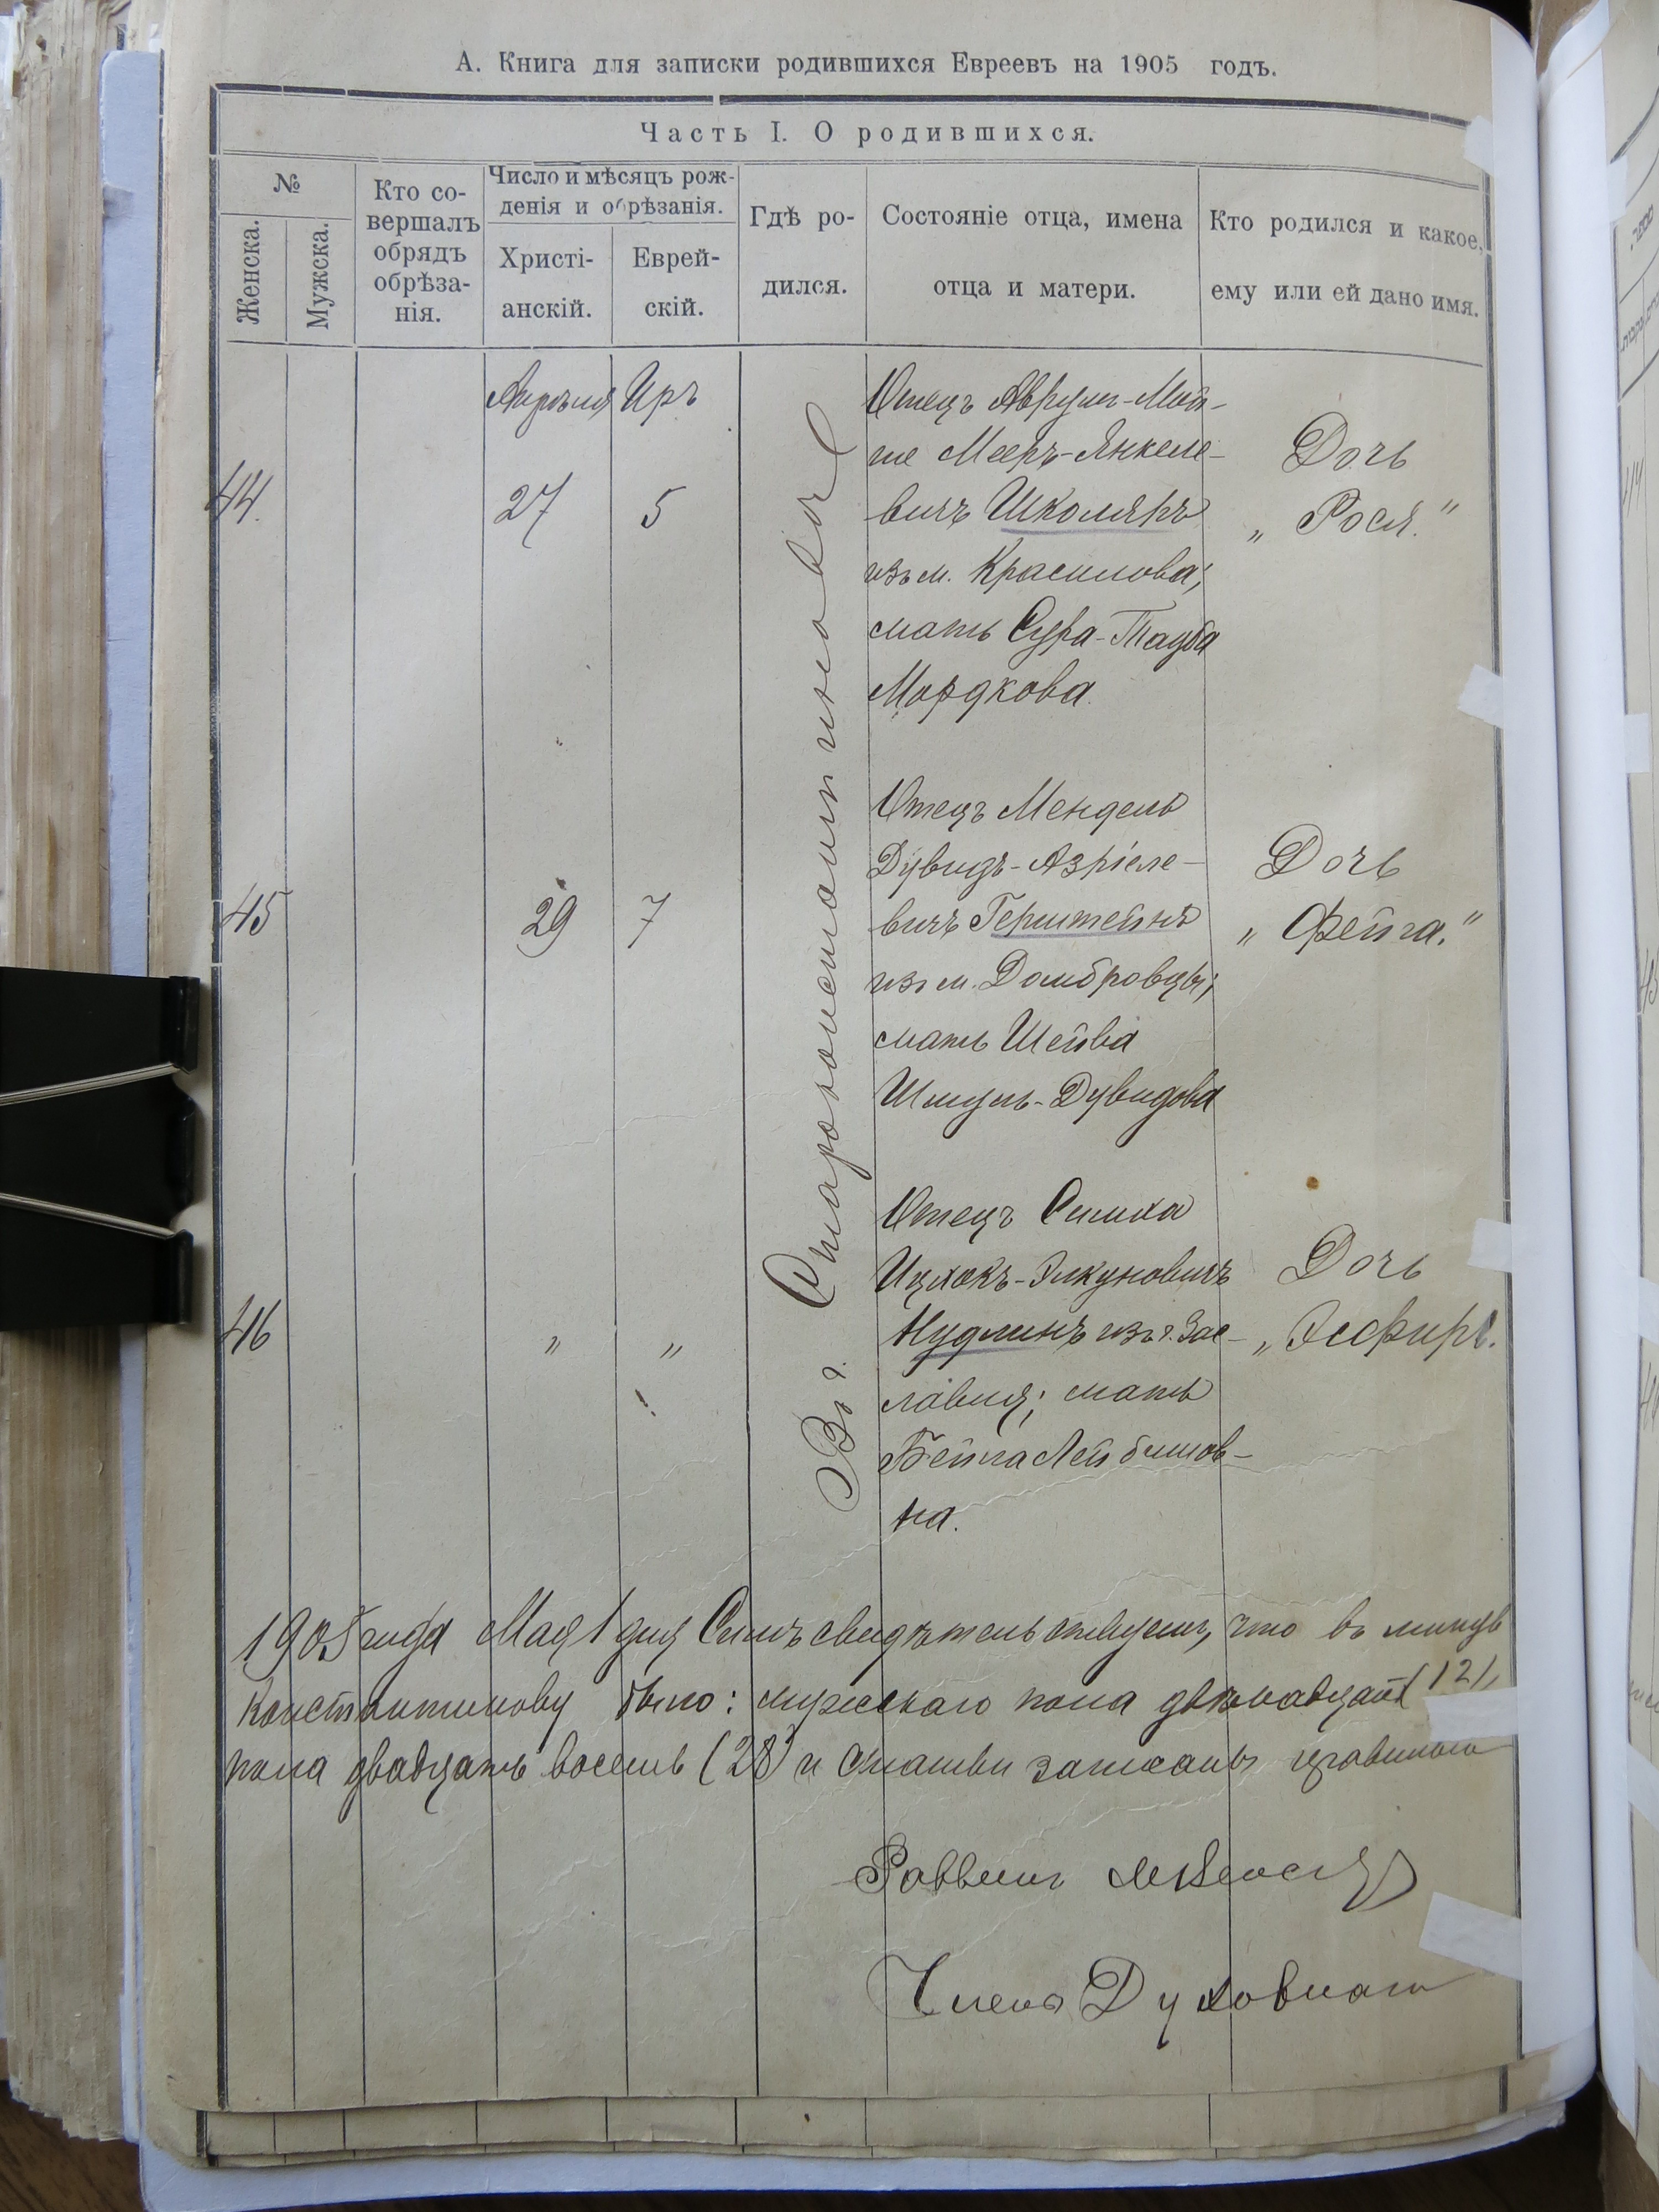 А. Книга для записки родившихся Евреевъ на 1905 годъ.
Часть I. О родившихся.
№
Женска.
Мужска.
Кто со-
вершалъ
обрядъ
обрѣза-
нія.
Число и мѣсяцъ рож-
денія и обрѣзанія.
Христі-
анскій.
Еврей-
скій.
Гдѣ ро-
дился.
Состояніе отца, имена
отца и матери.
Кто родился и какое,
ему или ей дано имя.
Апрѣля Иръ
44. 27 5
Въ г. Староконстантиновѣ
Отецъ Аврумъ-Мой-
ше Мееръ-Янкеле-
вичъ Школяръ
изъ м. Красилова;
мать Сура-Тауба
Мордкова.
Дочь
„ Рося."
45 29 7
Отецъ Мендель
Дувидъ-Азріеле-
вичъ Герштейнъ
изъ м. Домбровцы;
мать Шейва
Шмуль-Дувидова
Дочь
„ Фейга."
46 „ „
Отецъ Симха
Ицхокъ-Элкуновичъ
Нудлинъ изъ г. Зас-
лавля; мать
Бейла Лейбишов-
на.
Дочь
„ Эсфирь.
1905 года Мая 1 дня Симъ свидѣтельствуемъ, что въ
Константинову было: мужскаго пола двѣнадцать (12),
пола двадцать восемь (28) и статьи записаны правильно
Раввинъ
Члены Духовнаго